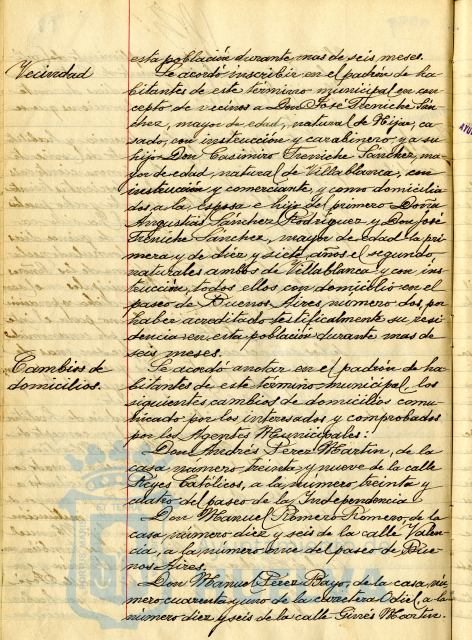 esta población durante mas de seis meses.
Vecindad
Se acordó inscribir en el padrón de ha-
bitantes de este término municipal en con-
cepto de vecinos a Don José Treniche Sán-
chez, mayor de edad, natural de Hijar, ca-
sado, con instrucción y carabinero, y a su
hijo Don Casimiro Treniche Sánchez, ma-
yor de edad, natural de Villablanca, con
instrucción y comerciante, y como domicilia-
dos, a la esposa e hijo del primero Doña
Angustias Sánchez Rodríguez y Don José
Treniche Sánchez, mayor de edad la pri-
mera y de diez y siete años el segundo,
naturales ambos de Villablanca y con ins-
trucción, todos ellos con domicilio en el
paseo de Buenos Aires, número dos, por
haber acreditado testificalmente su resi-
dencia en esta población durante mas de
seis meses.
Cambios de
domicilios.
Se acordó anotar en el padrón de ha-
bitantes de este término municipal, los
siguientes cambios de domicilios comu-
nicado por los interesados y comprobados
por los Agentes Municipales:
Don Andrés Perez Martin, de la
casa número treinta y nueve de la calle
Reyes Católicos, a la número treinta y
cuatro del paseo de la Independencia
Don Manuel Romero Romero, de la
casa número diez y seis de la calle Valen-
cia, a la número once del paseo de Bue-
nos Aires.
Don Manuel Pérez Bayo, de la casa nú-
mero cuarenta y uno de la carretera Odiel, a la
número diez y seis de la calle Ginés Martin.